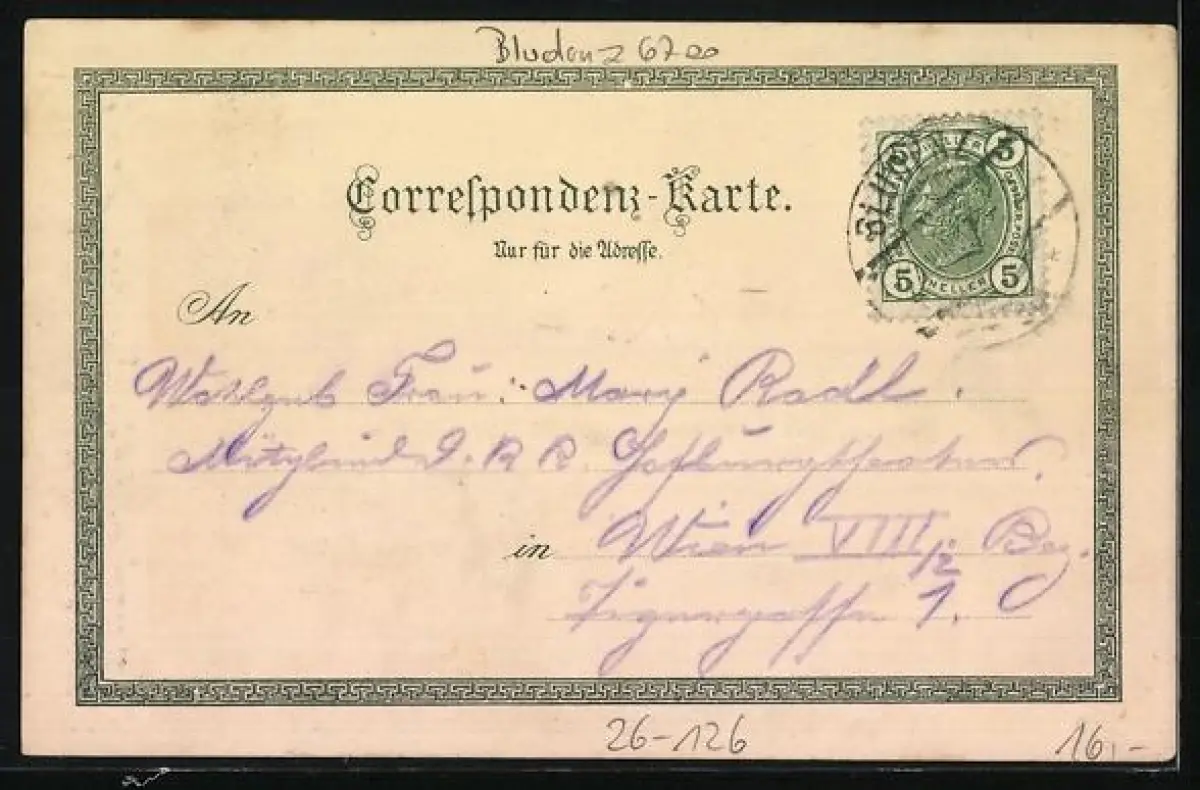 Bludenz 6700
Correspondenz-Karte.
Nur für die Adresse.
5 HELLER 5
BLUDENZ
5 HELLER 5
An
Wohlgeb Frau: Mary Radl.
Mitglied d. K. K. Hofburgtheaters.
in Wien VIII/2 Bez.
Tigergasse 1.
26-126
16,-